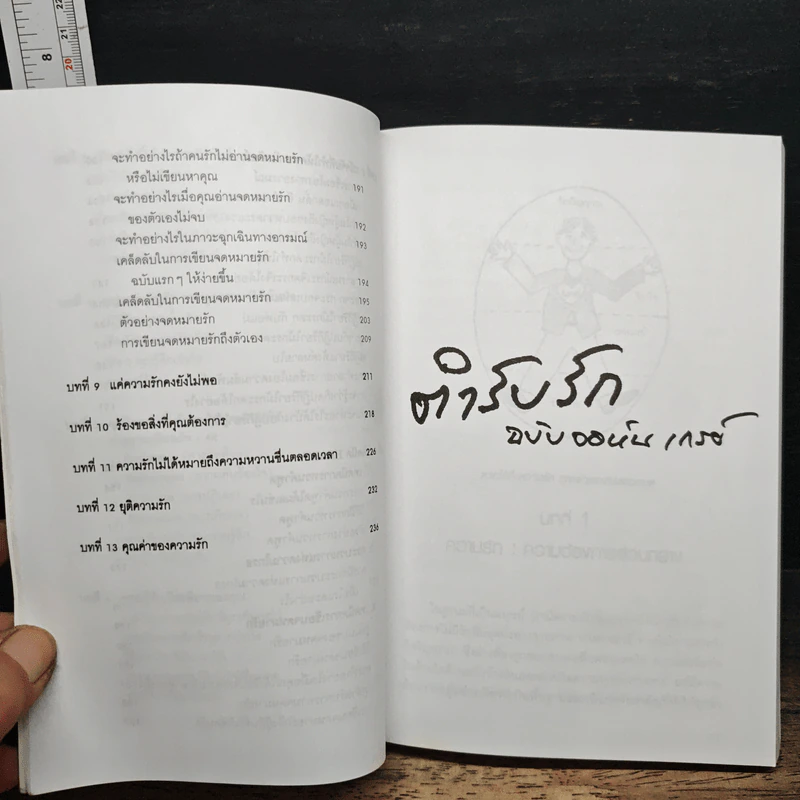 8
22
21
20
จะทำอย่างไรถ้าคนรักไม่อ่านจดหมายรัก
หรือไม่เขียนหาคุณ 191
จะทำอย่างไรเมื่อคุณอ่านจดหมายรัก
ของตัวเองไม่จบ 192
จะทำอย่างไรในภาวะฉุกเฉินทางอารมณ์ 193
เคล็ดลับในการเขียนจดหมายรัก
ฉบับแรก ๆ ให้ง่ายขึ้น 194
เคล็ดลับในการเขียนจดหมายรัก 195
ตัวอย่างจดหมายรัก 203
การเขียนจดหมายรักถึงตัวเอง 209
บทที่ 9 แค่ความรักคงยังไม่พอ 211
บทที่ 10 ร้องขอสิ่งที่คุณต้องการ 218
บทที่ 11 ความรักไม่ได้หมายถึงความหวานชื่นตลอดเวลา 226
บทที่ 12 ยุติความรัก 232
บทที่ 13 คุณค่าของความรัก 236
ตำรับรัก
ฉบับจอห์น เกรย์